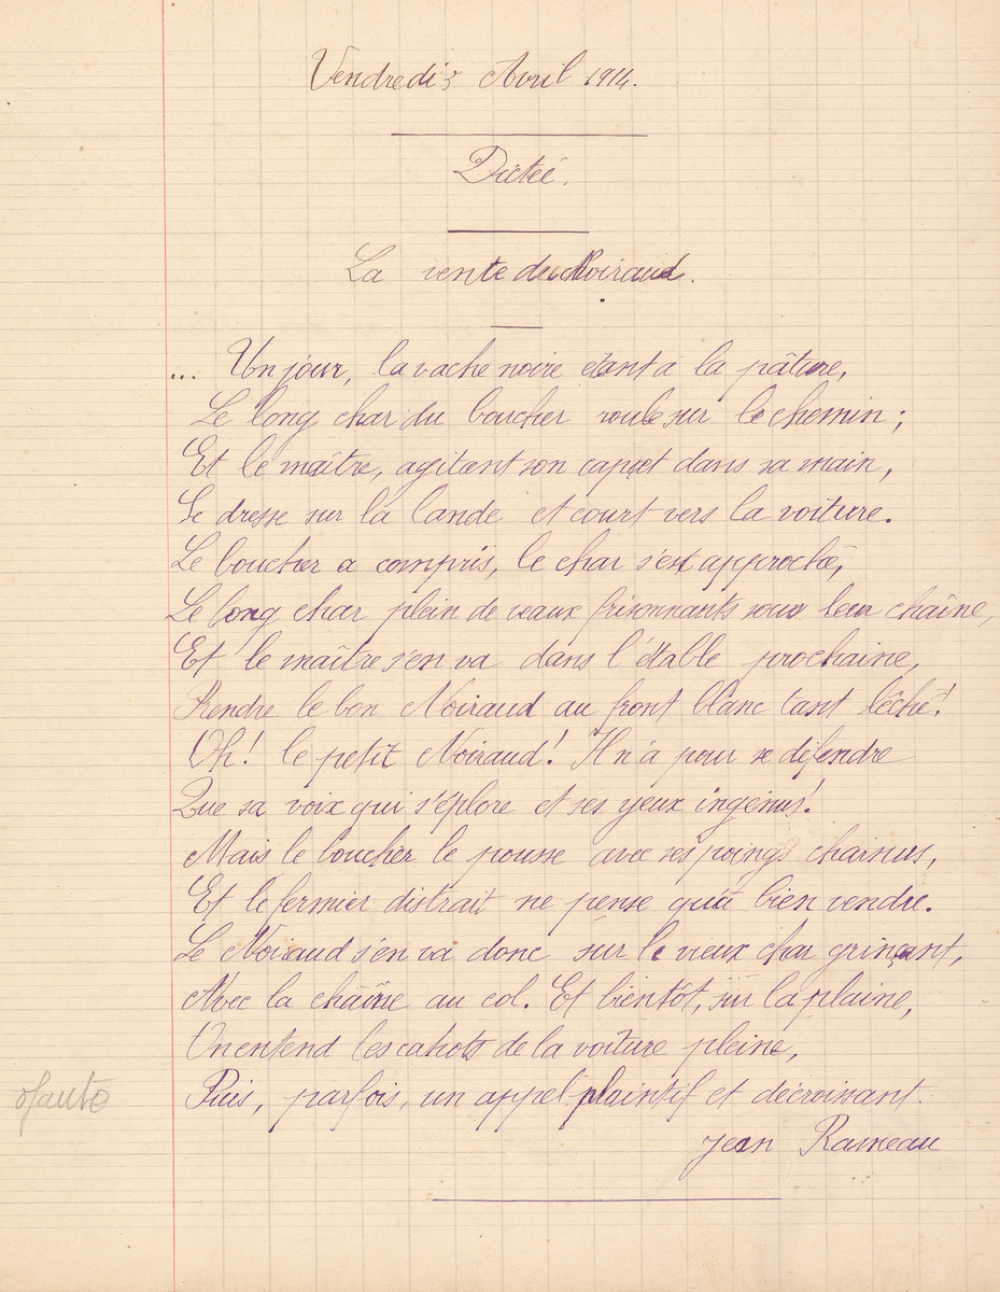 Vendredi 3 Avril 1914.
Dictée.
La vente du Noiraud.
... Un jour, la vache noire étant à la pâture,
Le long char du boucher roule sur le chemin ;
Et le maître, agitant son capet dans sa main,
Se dresse sur la lande et court vers la voiture.
Le boucher a compris, le char s'est approché,
Le long char plein de veaux frisonnants sous leur chaîne,
Et le maître s'en va dans l'étable prochaine,
Prendre le bon Noiraud au front blanc tant lêché !
Oh ! le petit Noiraud ! Il n'a pour se défendre
Que sa voix qui s'éplore et ses yeux ingénus !
Mais le boucher le pousse avec ses poings charnus,
Et le fermier distrait ne pense qu'à bien vendre.
Le Noiraud s'en va donc sur le vieux char grinçant,
Avec la chaîne au col. Et bientôt, sur la plaine,
On entend les cahots de la voiture pleine,
0 faute
Puis, parfois, un appel plaintif et décroissant.
Jean Rameau